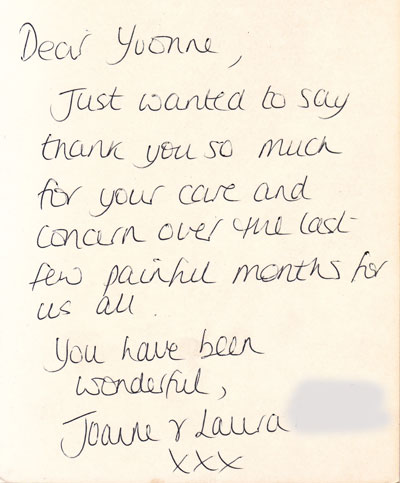 Dear Yvonne,
Just wanted to say
thank you so much
for your care and
concern over the last
few painful months for
us all.
You have been
wonderful,
Joanne & Laura
xxx